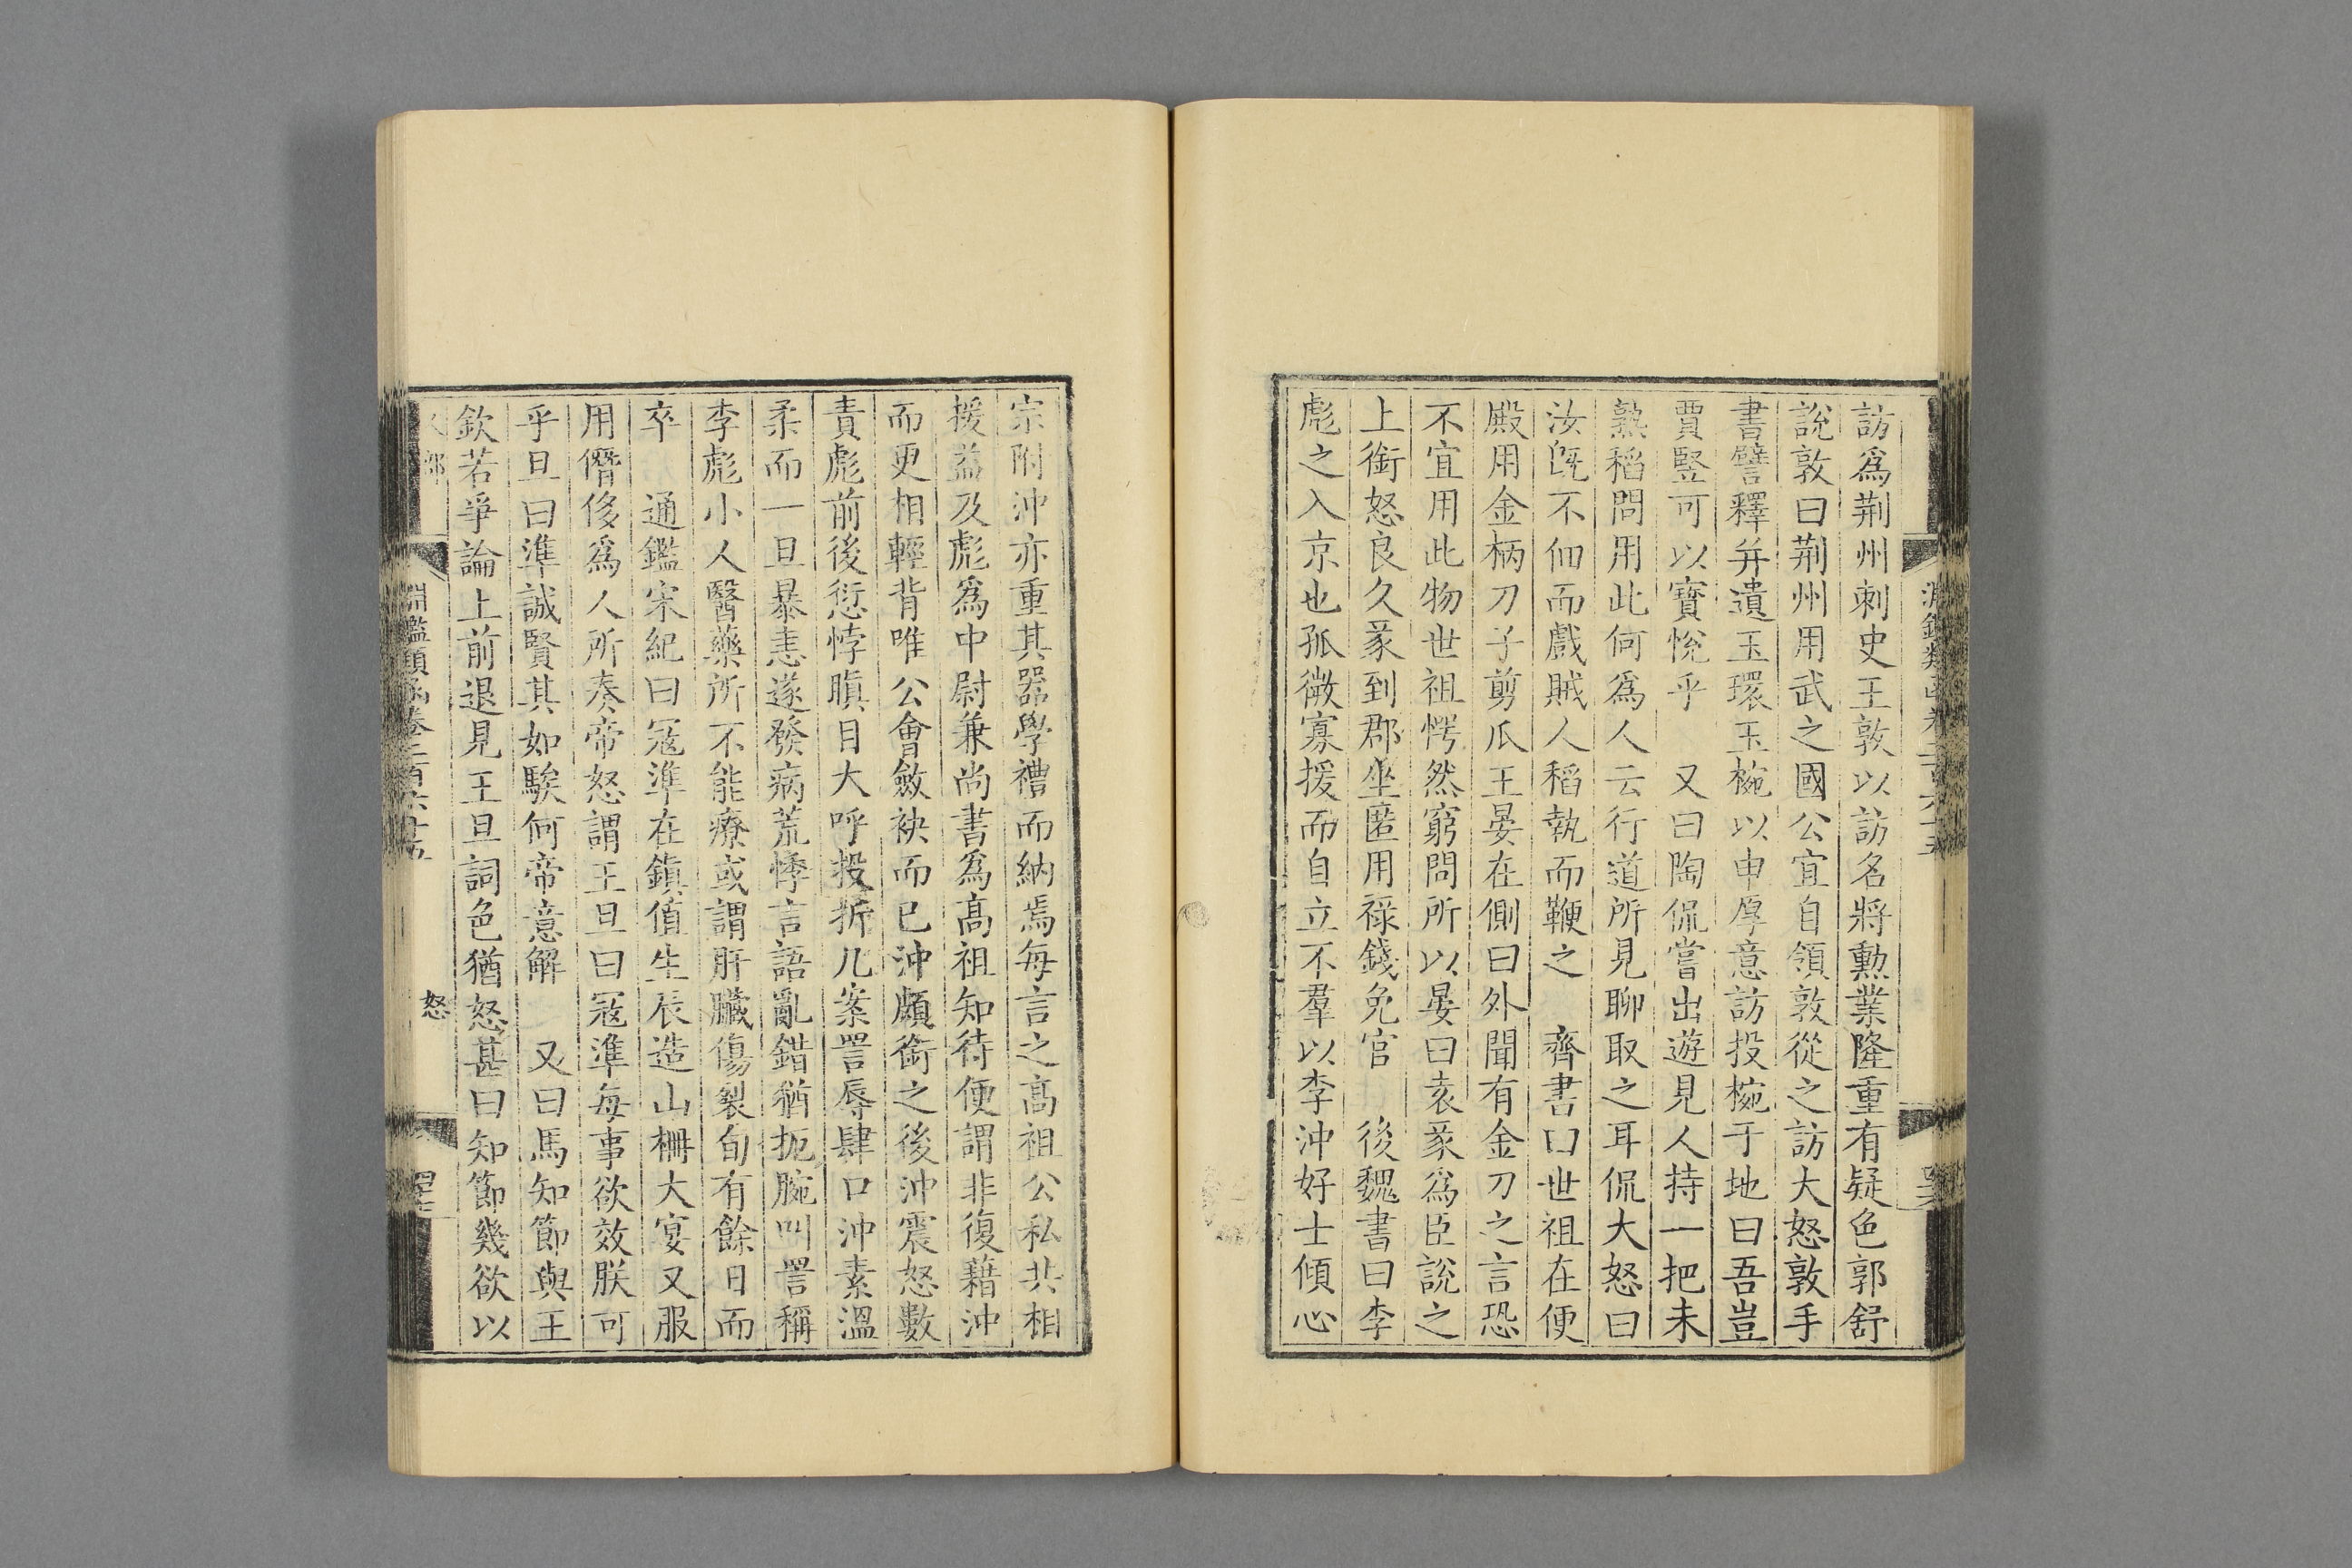 訪爲荆州刺史王敦以訪名將勳業隆重有疑色郭舒
說敦曰荆州用武之國公宜自領敦從之訪大怒敦手
書譬釋并遺玉環玉椀以申厚意訪投椀于地曰吾豈
賈竪可以寳悅乎　又曰陶侃嘗出遊見人持一把未
熟稻問用此何爲人云行道所見聊取之耳侃大怒曰
汝旣不佃而戲賊人稻執而鞭之　齊書曰世祖在便
殿用金柄刀子剪瓜王晏在側曰外聞有金刀之言恐
不宜用此物世祖愕然窮問所以晏曰袁彖爲臣說之
上銜怒良久彖到郡坐匿用禄錢免官　後魏書曰李
彪之入京也孤微寡援而自立不羣以李沖好士傾心
宗附沖亦重其器學禮而納焉每言之高祖公私共相
援益及彪爲中尉兼尚書爲高祖知待便謂非復藉沖
而更相輕背唯公會斂袂而已沖頗銜之後沖震怒數
責彪前後愆悖瞋目大呼投折几案詈辱肆口沖素溫
柔而一旦暴恚遂發病荒悸言語亂錯猶扼腕叫詈稱
李彪小人醫藥所不能療或謂肝臟傷裂旬有餘日而
卒　通鑑宋紀曰冦準在鎮值生辰造山棚大宴又服
用僭侈爲人所奏帝怒謂王旦曰冦準每事欲效朕可
乎旦曰準誠賢其如騃何帝意解　又曰馬知節與王
欽若爭論上前退見王旦詞色猶怒甚曰知節幾欲以
淵鑑類函卷二百六十五
怒